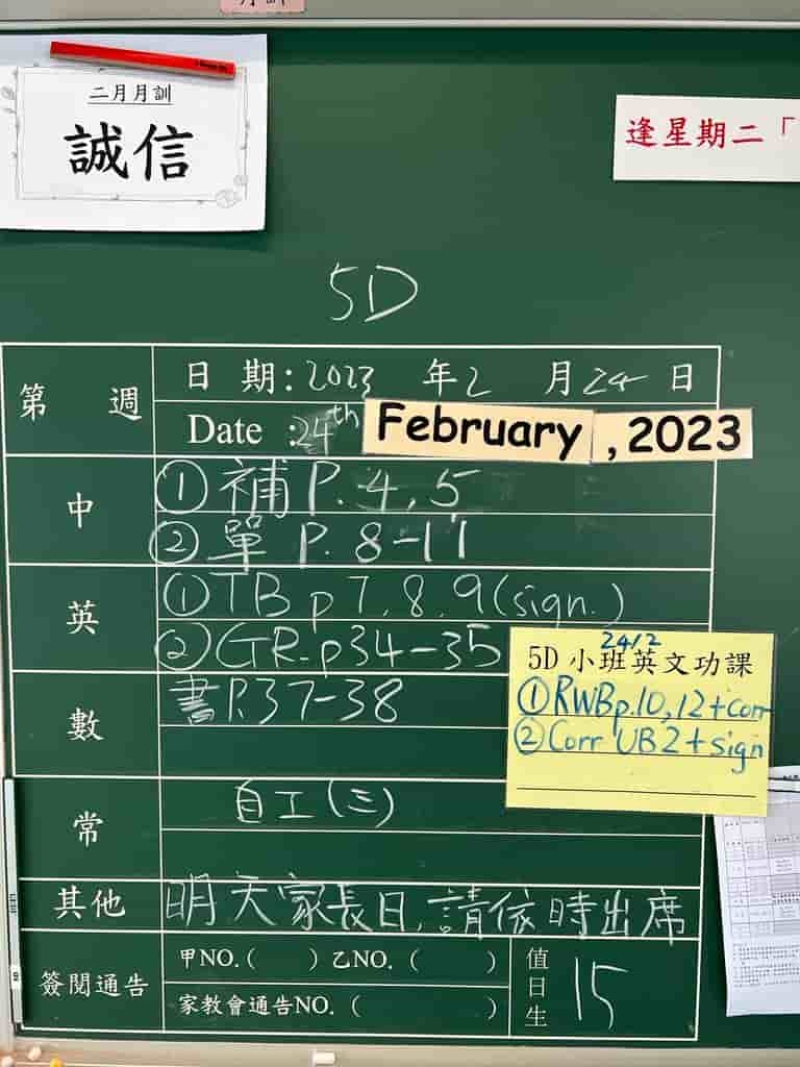 月訓
二月月訓
誠信
逢星期二「
5D
第 週
日 期:2023 年2 月24日
Date :24th February ,2023
中
①補 P.4,5
②單 P.8-11
英
①TB p7,8,9(sign.)
②GR.p34-35
24/2
5D 小班英文功課
①RWBp.10,12+corr
②Corr UB2+sign
數
書P.37-38
常
自工(三)
其他
明天家長日,請依時出席
簽閱通告
甲NO.( ) 乙NO.( )
家教會通告NO.( )
值日生
15